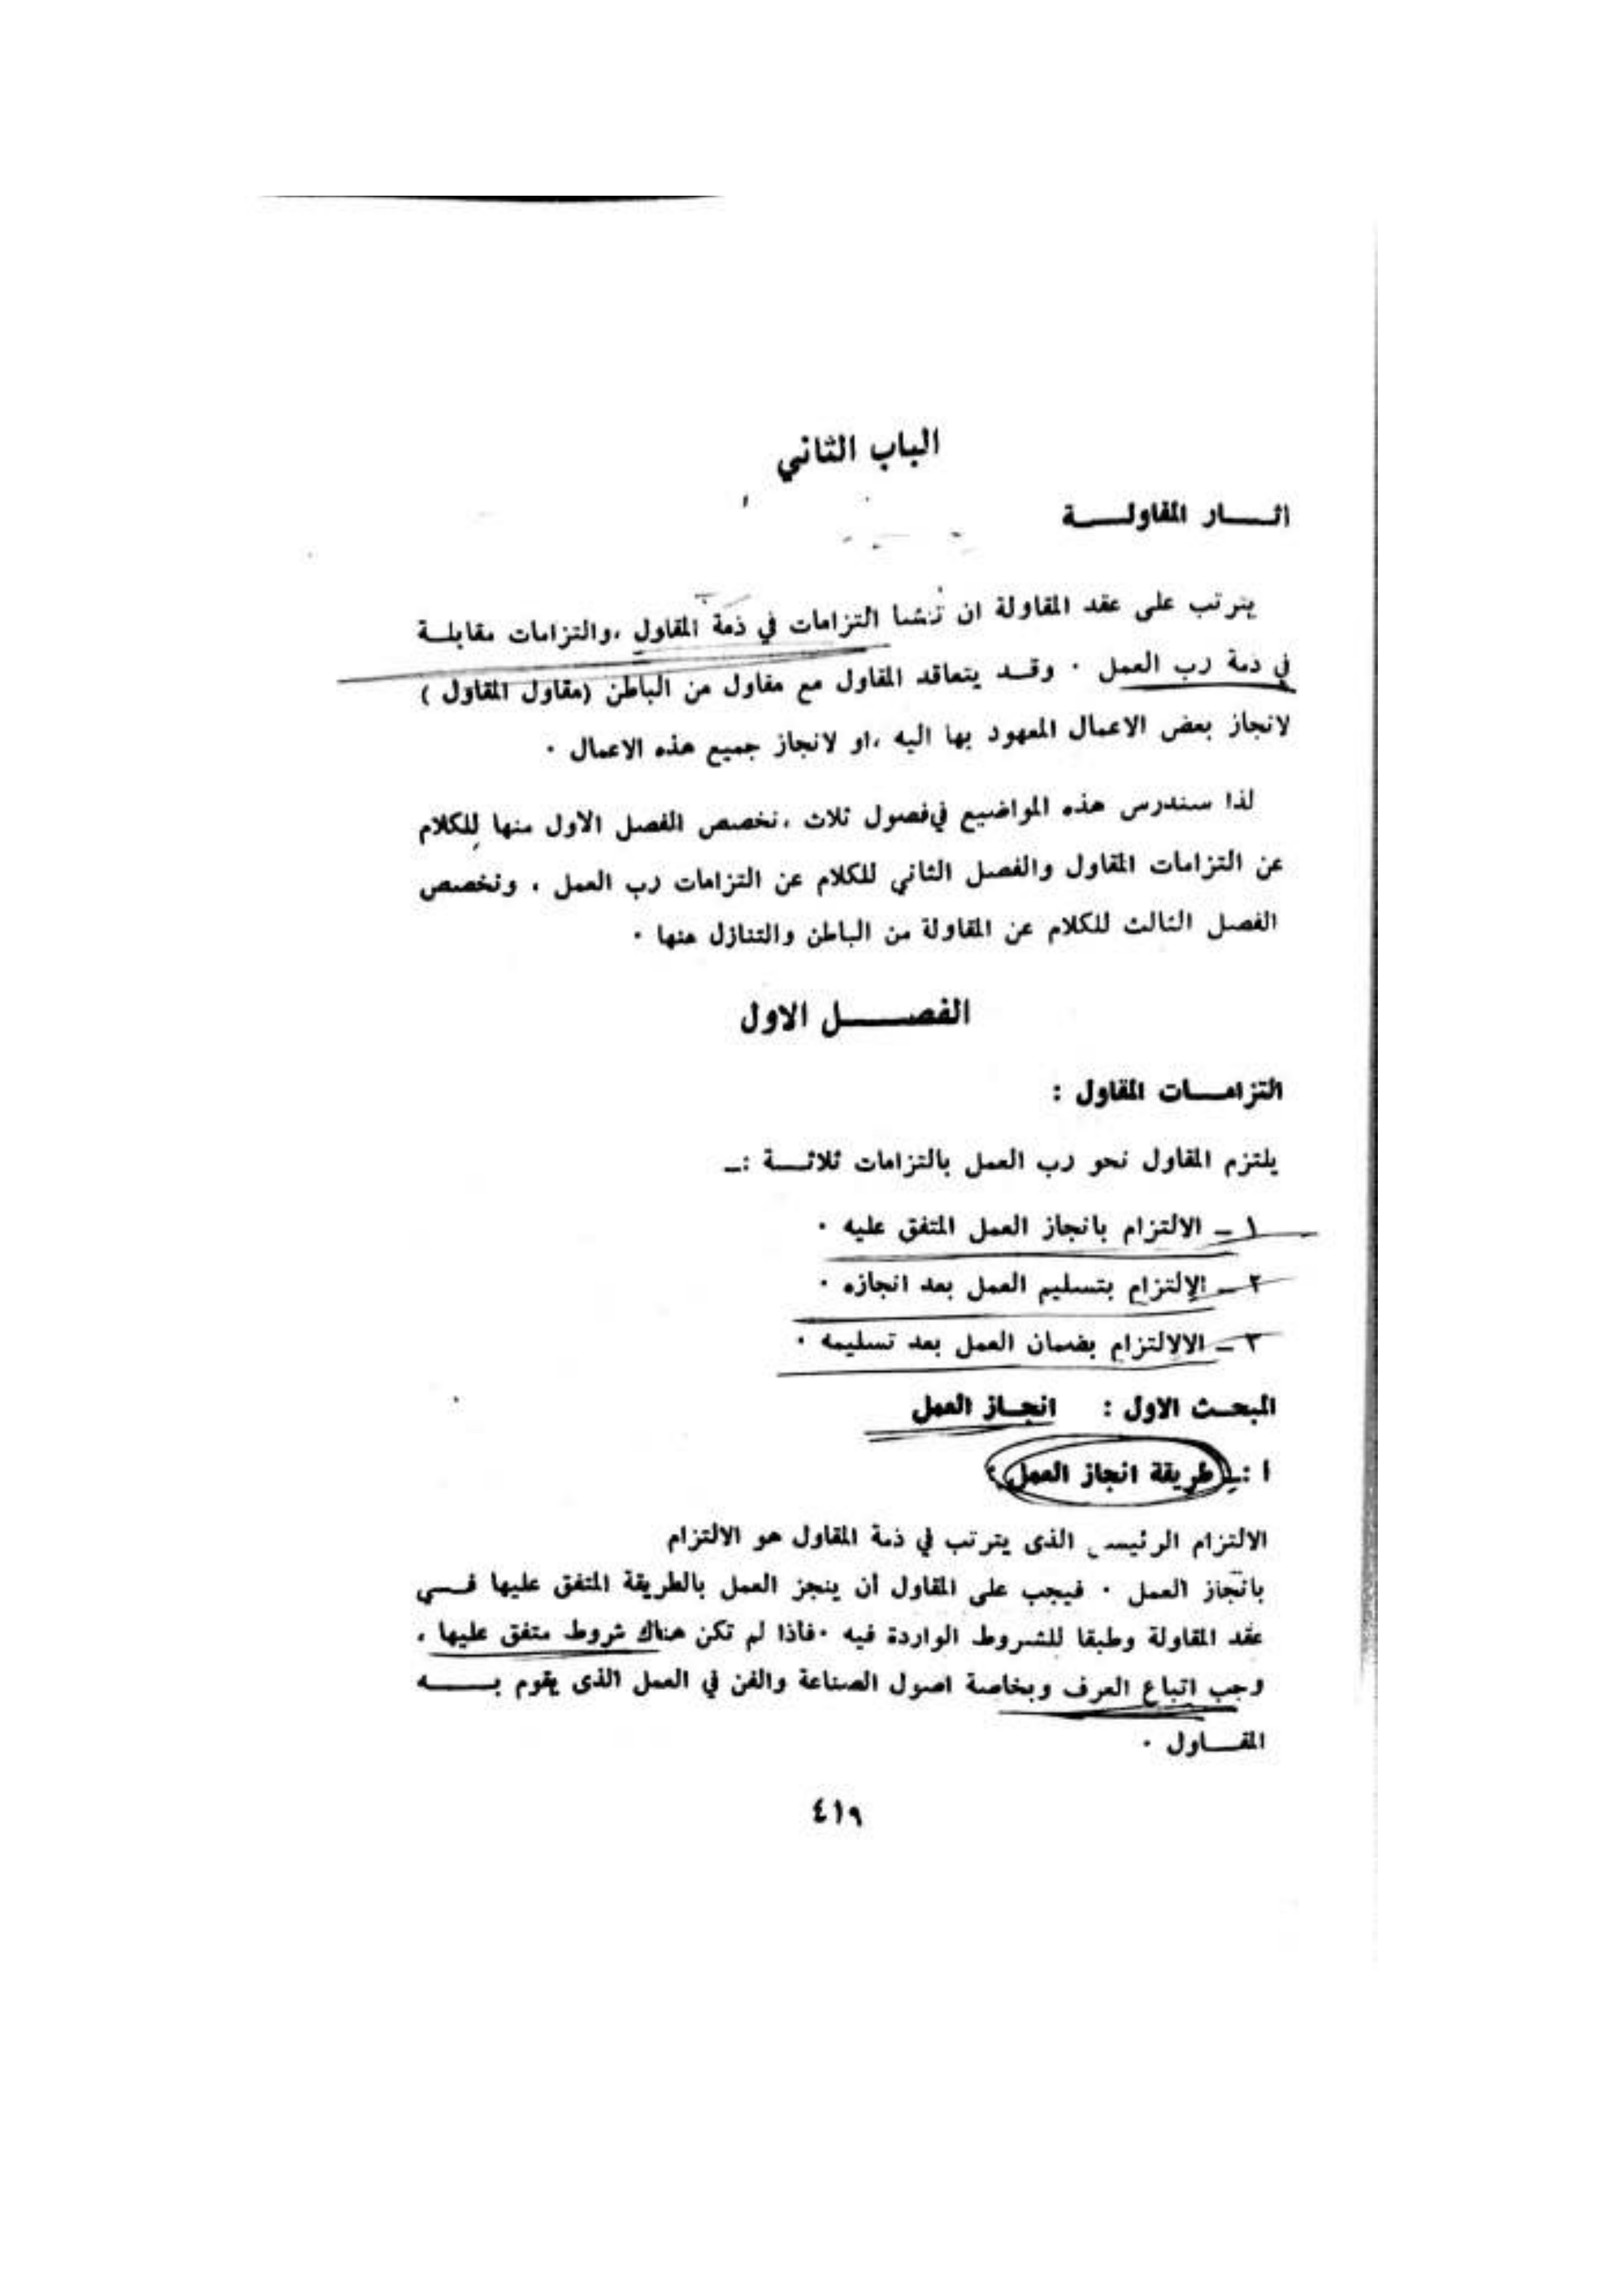 الباب الثاني
اثـــار المقاولـــة
يترتب على عقد المقاولة ان تنشا التزامات في ذمة المقاول ،والتزامات مقابلـة
في ذمة رب العمل . وقـد يتعاقد المقاول مع مقاول من الباطن (مقاول المقاول )
لانجاز بعض الاعمال المعهود بها اليه ،او لانجاز جميع هذه الاعمال .
لذا سندرس هذه المواضيع في فصول ثلاث ،نخصص الفصل الاول منها للكلام
عن التزامات المقاول والفصل الثاني للكلام عن التزامات رب العمل ، ونخصص
الفصل الثالث للكلام عن المقاولة من الباطن والتنازل منها .
الفصـــــل الاول
التزامـــات المقاول :
يلتزم المقاول نحو رب العمل بالتزامات ثلاثـــة :ـ
١ ـ الالتزام بانجاز العمل المتفق عليه .
٢ ـ الالتزام بتسليم العمل بعد انجازه .
٣ ـ الالالتزام بضمان العمل بعد تسليمه .
المبحـث الاول : انجـاز العمل
أ :ـ طريقة انجاز العمل :
الالتزام الرئيسي الذى يترتب في ذمة المقاول هو الالتزام
بانجاز العمل . فيجب على المقاول أن ينجز العمل بالطريقة المتفق عليها فـــي
عقد المقاولة وطبقا للشروط الواردة فيه .فاذا لم تكن هناك شروط متفق عليها ،
وجب اتباع العرف وبخاصة اصول الصناعة والفن في العمل الذى يقوم بـــــه
المقـــاول .
٤١٩